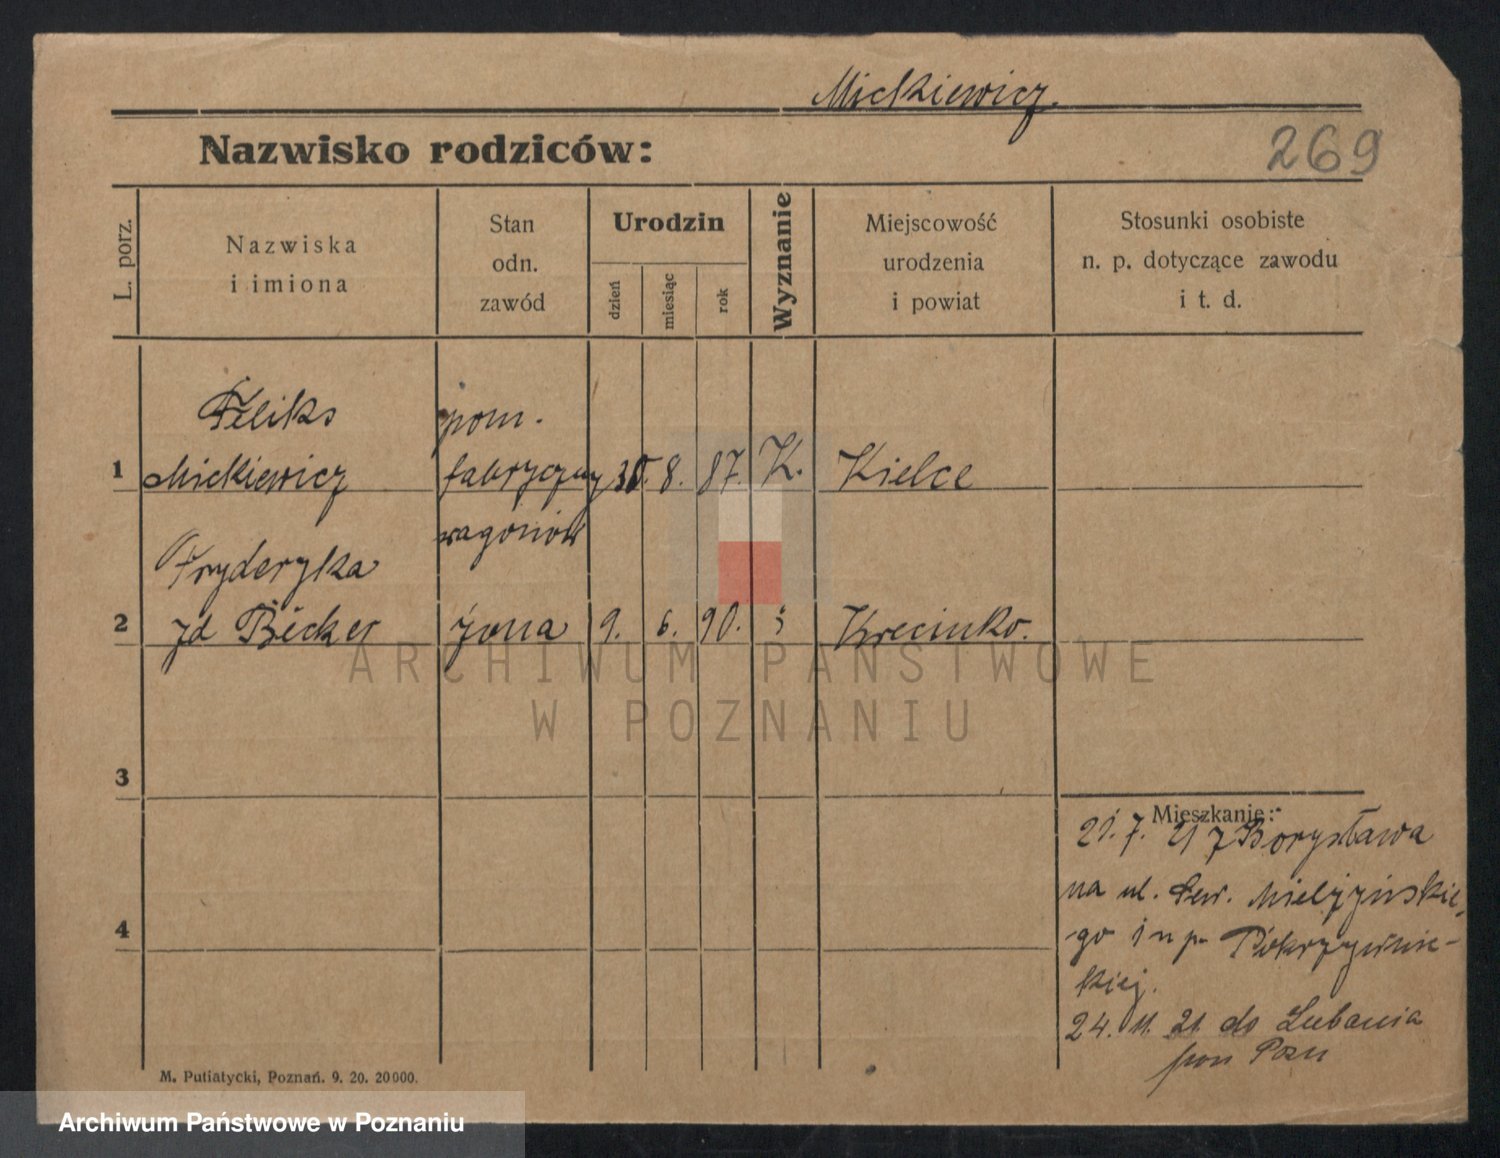 Mickiewicz.
Nazwisko rodziców:
269
L. porz.
Nazwiska
i imiona
Stan
odn.
zawód
Urodzin
dzień
miesiąc
rok
Wyznanie
Miejscowość
urodzenia
i powiat
Stosunki osobiste
n. p. dotyczące zawodu
i t. d.
Feliks
pom.
1 Mickiewicz fabryczny 8. 87. K. Kielce
wagonów
Fryderyka
2 zd Becker żona 9. 6. 90. Krecinko.
3
Mieszkanie:
21. 7. 21 z Borysława
na ul. Sew. Mielżyńskie-
go p.
kiej.
4
24. 11. 21 do Lubania
pow Pozn
M. Putiatycki, Poznań. 9. 20. 20000.
ARCHIWUM PAŃSTWOWE
W POZNANIU
Archiwum Państwowe w Poznaniu